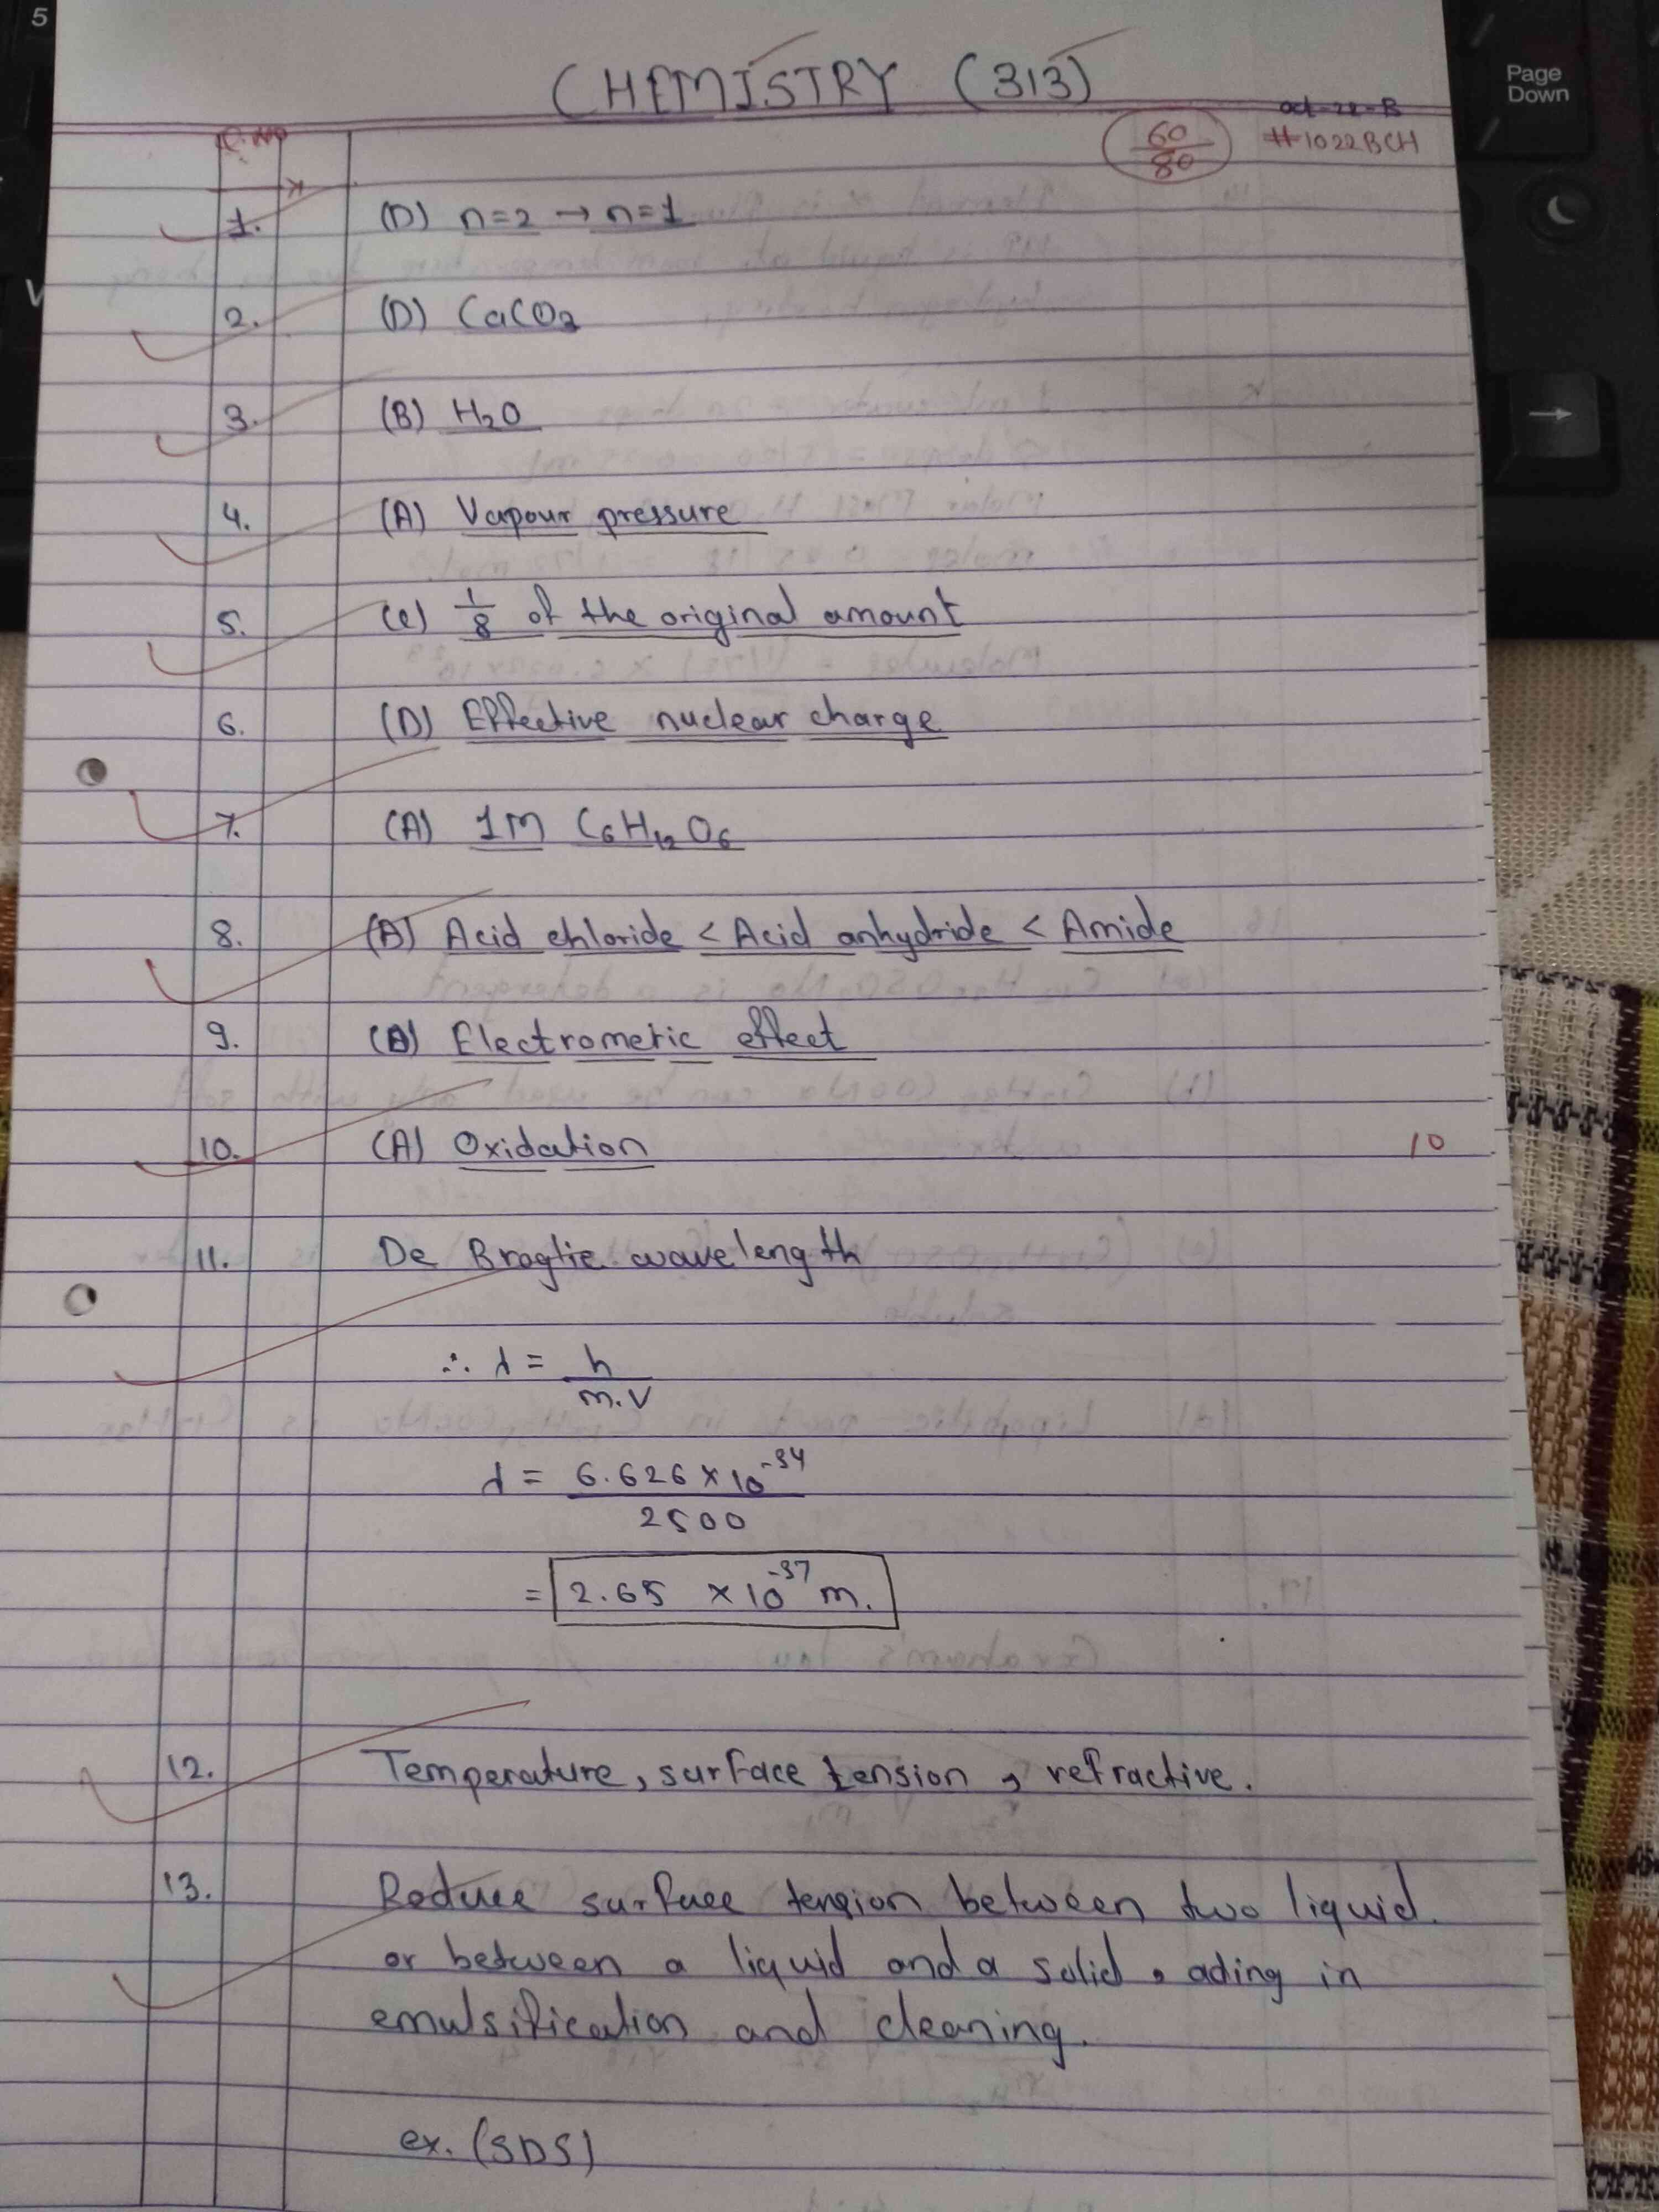 CHEMISTRY (313)
oct-22-B
60
80
#1022BCH
Q.No
1. (D) n=2 → n=1
2. (D) CaCO3
3. (B) H2O
4. (A) Vapour pressure
5. (C) 1/8 of the original amount
6. (D) Effective nuclear charge
7. (A) 1M C6H12O6
8. (A) Acid chloride < Acid anhydride < Amide
9. Electrometic effect
10. (A) Oxidation
10
11. De Broglie wavelength
∴ λ = h / m.v
λ = 6.626 × 10^-34 / 2500
= 2.65 × 10^-37 m.
12. Temperature, surface tension, refractive.
13. Reduce surface tension between two liquid.
or between a liquid and a solid, ading in
emulsification and cleaning.
ex. (SDS)
Page
Down
5
→